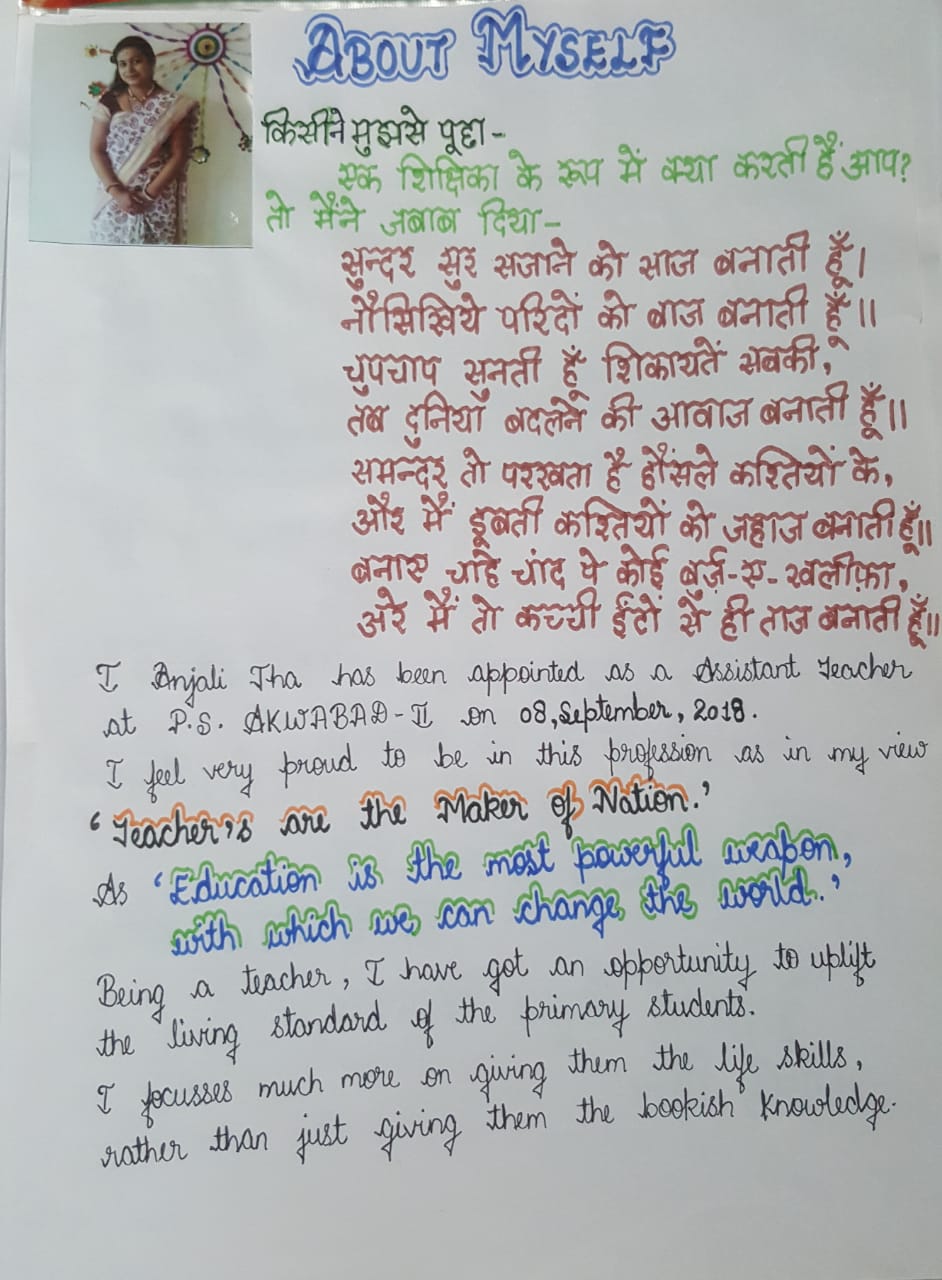 ABOUT MYSELF
किसीने मुझसे पूछा-
एक शिक्षिका के रूप में क्या करती हैं आप?
तो मैंने जबाब दिया-
सुन्दर सुर सजाने को साज बनाती हूँ।
नौसिखिये परिंदों को बाज बनाती हूँ॥
चुपचाप सुनती हूँ शिकायतें सबकी,
तब दुनियाँ बदलने की आवाज बनाती हूँ॥
समन्दर तो परखता है हौंसले कश्तियों के,
और मैं डूबती कश्तियों को जहाज बनाती हूँ॥
बनाए चाहे चांद पे कोई बुर्ज़-ए-खलीफ़ा,
अरे मैं तो कच्ची ईंटों से ही ताज बनाती हूँ॥
I Anjali Jha has been appointed as a Assistant Teacher
at P.S. AKWABAD-II on 08,September, 2018.
I feel very proud to be in this profession as in my view
'Teacher's are the Maker of Nation.'
As 'Education is the most powerful weapon,
with which we can change the world.'
Being a teacher, I have got an opportunity to uplift
the living standard of the primary students.
I focusses much more on giving them the life skills,
rather than just giving them the bookish knowledge.